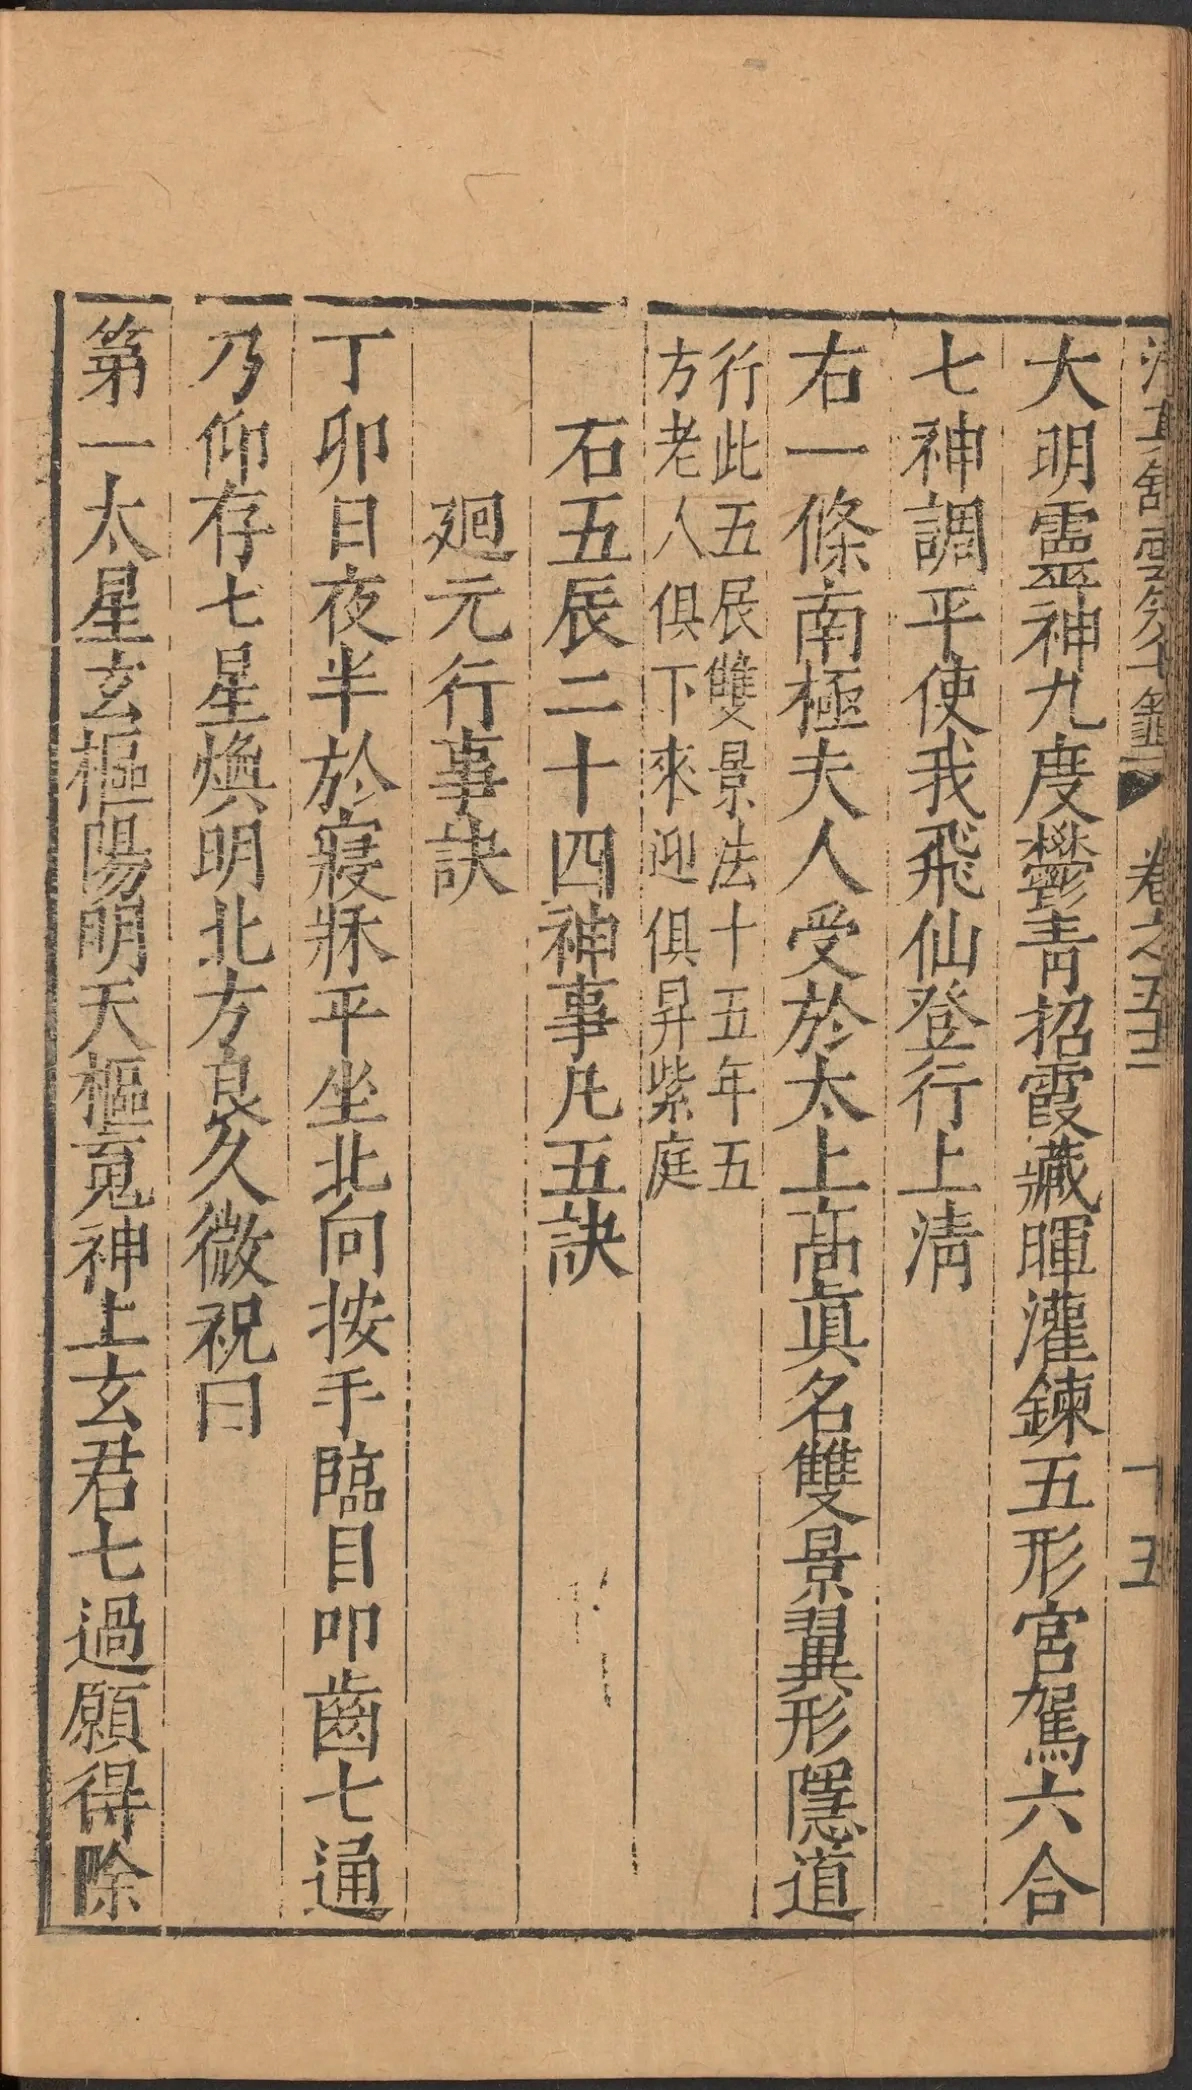 清真館雲笈七籤 卷之五十二 十五
大明靈神九度鬱青招霞藏暉灌鍊五形宮駕六合
七神調平使我飛仙登行上清
右一條南極夫人受於太上高眞名雙景翼形隱道
行此五辰雙景法十五年五
方老人俱下來迎俱昇紫庭
右五辰二十四神事凡五訣
廻元行事訣
丁卯日夜半於寢牀平坐北向按手臨目叩齒七通
乃仰存七星煥明北方良久微祝曰
第一太星玄樞陽明天樞䰟神上玄君七過願得除